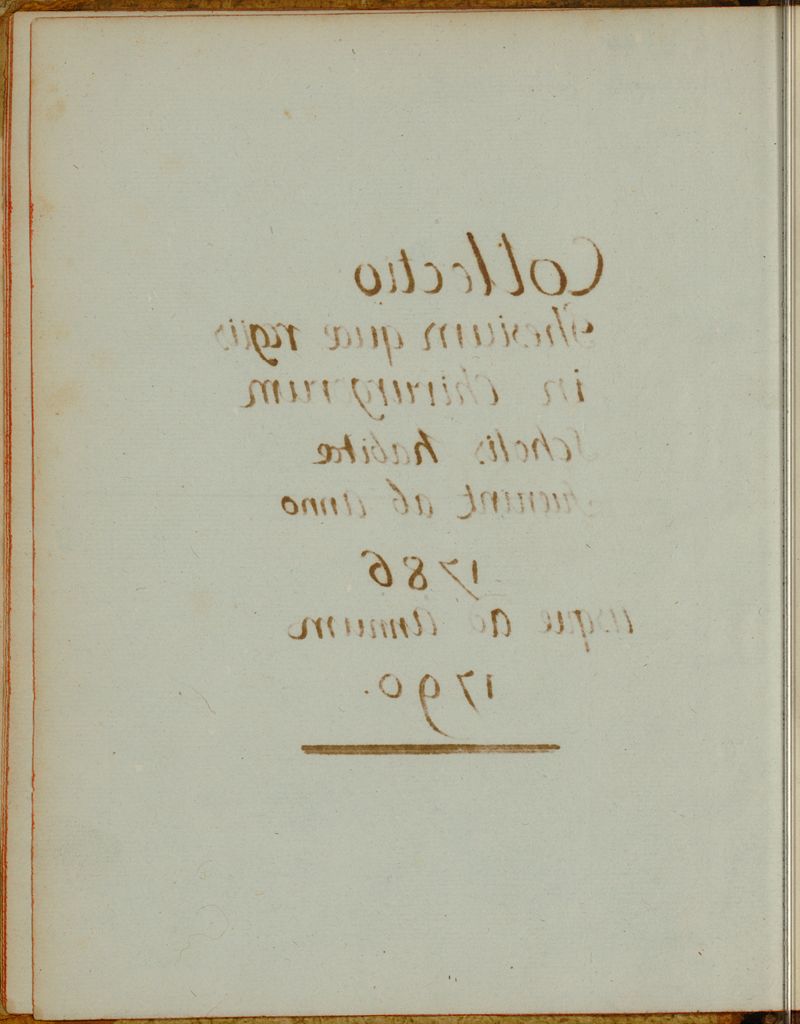 Collectio
Thesium quæ regiis
in Chirurgorum
Scholis habitæ
fuerunt ab anno
1786
usque ad annum
1790.